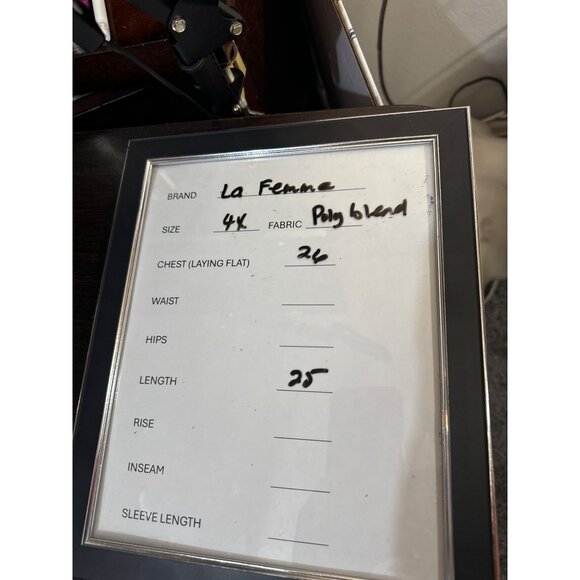 BRAND La Femme
SIZE 4X FABRIC Poly blend
CHEST (LAYING FLAT) 26
WAIST
HIPS
LENGTH 25
RISE
INSEAM
SLEEVE LENGTH